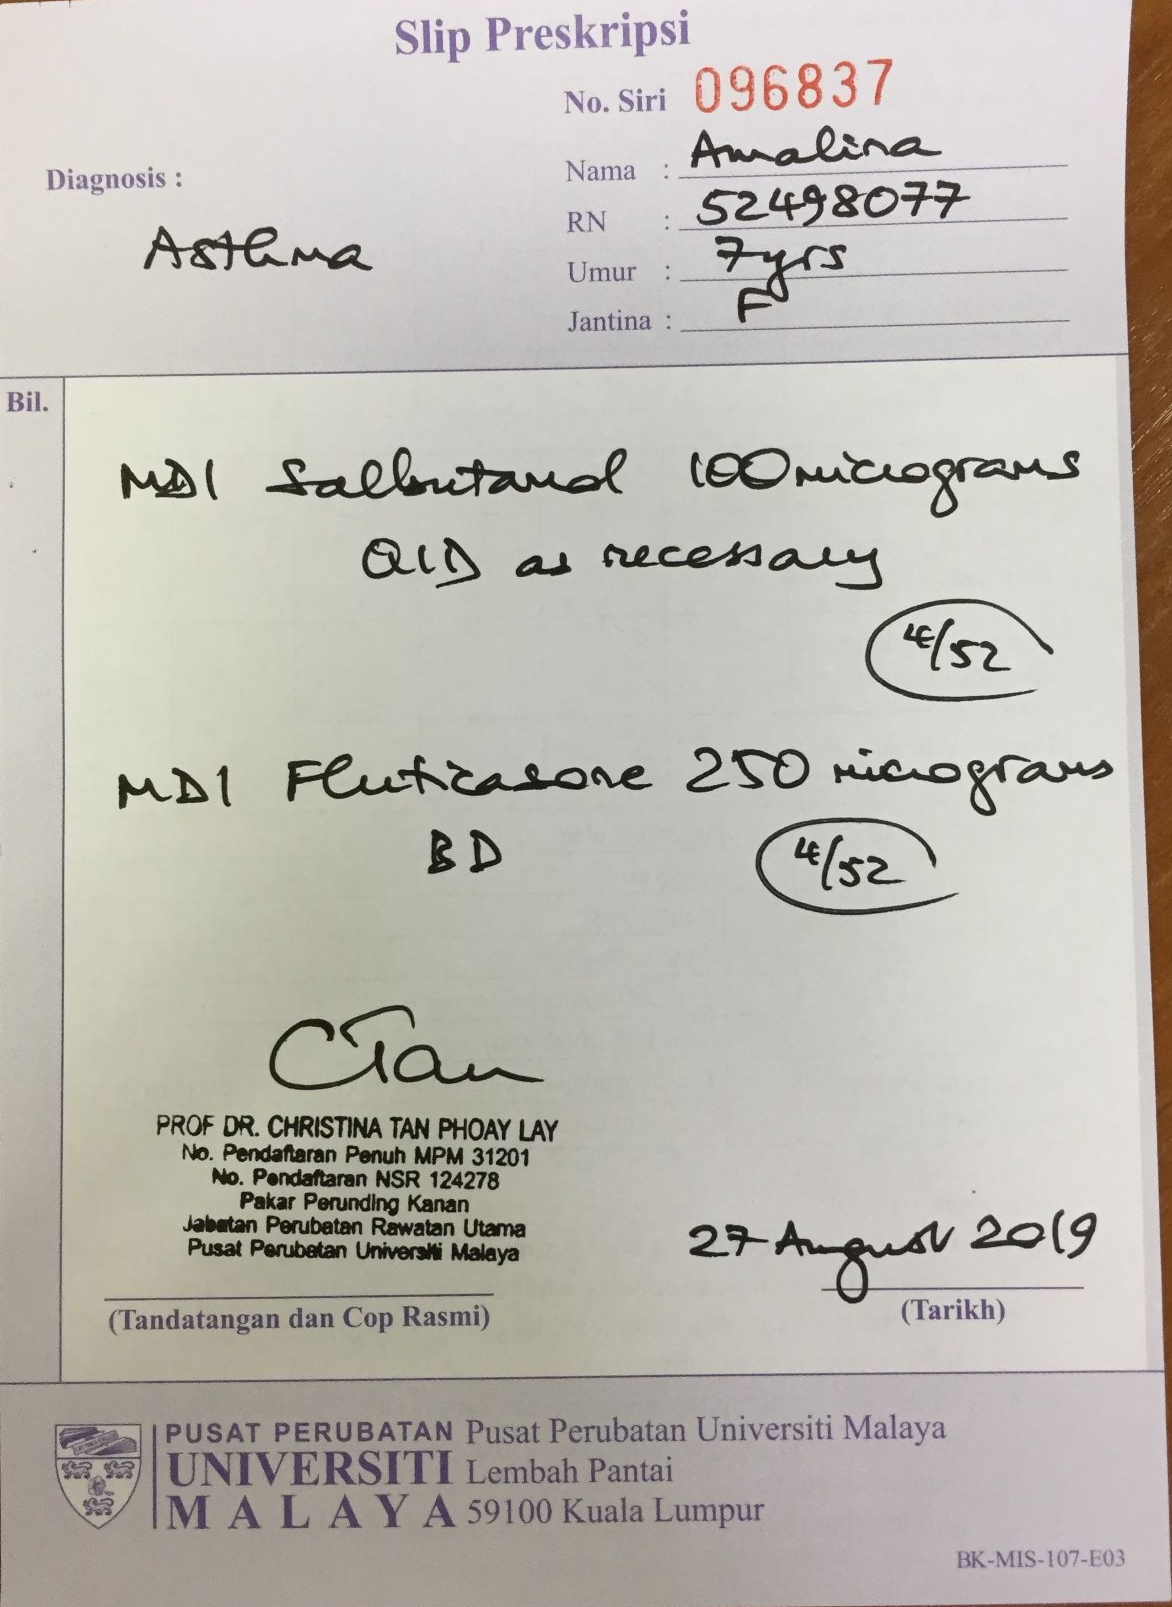 Slip Preskripsi
No. Siri 096837
Diagnosis :
Asthma
Nama : Amalina
RN : 52498077
Umur : 7yrs
Jantina : F
Bil.
MDI Salbutamol 100 micrograms
QID as necessary
4/52
MDI Fluticasone 250 micrograms
BD
4/52
CTan
PROF DR. CHRISTINA TAN PHOAY LAY
No. Pendaftaran Penuh MPM 31201
No. Pendaftaran NSR 124278
Pakar Perunding Kanan
Jabatan Perubatan Rawatan Utama
Pusat Perubatan Universiti Malaya
27 August 2019
(Tandatangan dan Cop Rasmi)
(Tarikh)
PUSAT PERUBATAN
UNIVERSITI
MALAYA
Pusat Perubatan Universiti Malaya
Lembah Pantai
59100 Kuala Lumpur
BK-MIS-107-E03